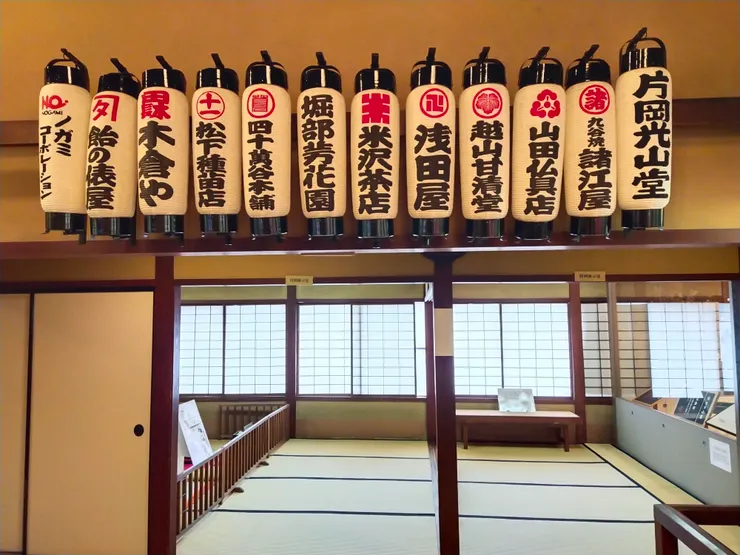 NOGAMI
ノガミ
コーポレーション
飴の俵屋
木倉や
松下種苗店
四十萬谷本舗
堀部芳花園
米
米沢茶店
浅田屋
越山甘清堂
山田仏具店
諸
九谷焼
諸江屋
片岡光山堂